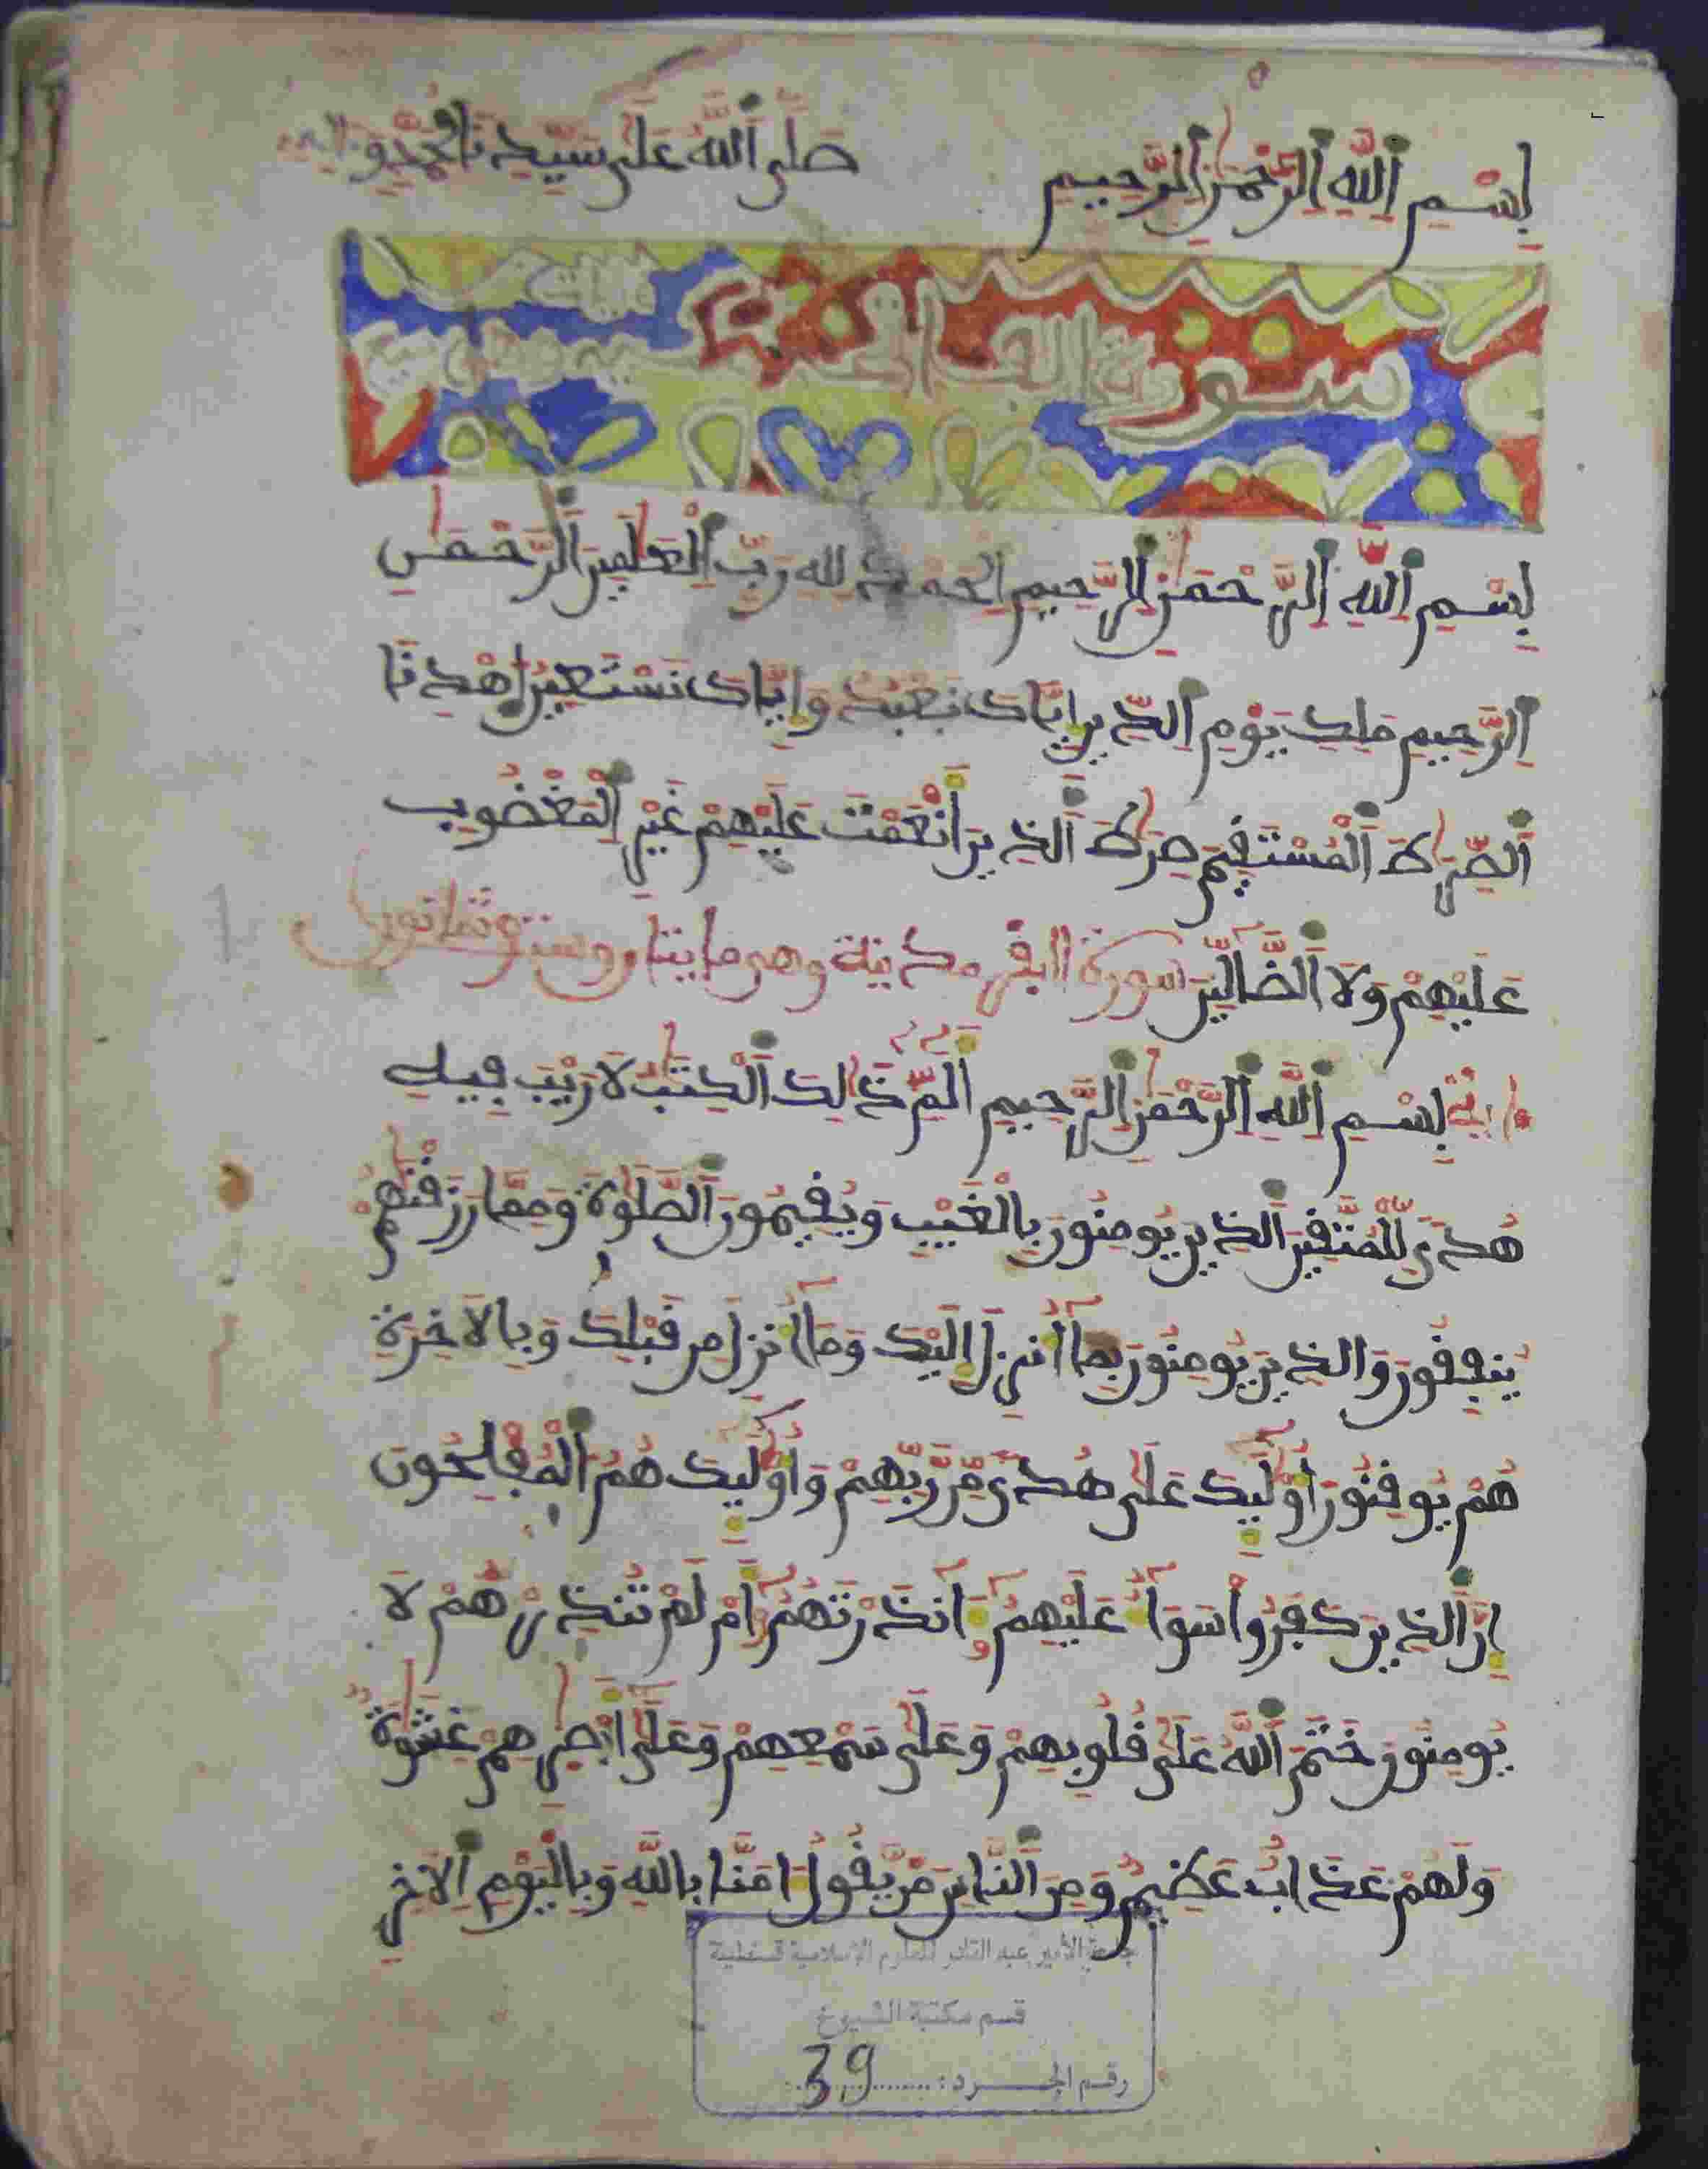 بِسْمِ اِللَّهِ اِلرَّحْمَٰنِ اِلرَّحِيمِ
صَلَّى اَللَّهُ عَلَى سَيِّدِنَا مُحَمَّدٍ وَ
سورة الحمد
بِسْمِ اِللَّهِ اِلرَّحْمَٰنِ اِلرَّحِيمِ اِلْحَمْدُ لِلهِ رَبِّ اِلْعَٰلَمِينَ اَلرَّحْمَٰنِ
اِلرَّحِيمِ مَلِكِ يَوْمِ اِلدِّينِ إِيَّاكَ نَعْبُدُ وَإِيَّاكَ نَسْتَعِينُ اِهْدِنَا
اَلصِّرَٰطَ اَلْمُسْتَقِيمَ صِرَٰطَ اَلذِينَ أَنْعَمْتَ عَلَيْهِمْ غَيْرِ اِلْمَغْضُوبِ
عَلَيْهِمْ وَلَا اَلضَّالِّينَ سورة البقرة مدنية وهي مايتان وستة وثمانون
اية بِسْمِ اِللَّهِ اِلرَّحْمَٰنِ اِلرَّحِيمِ أَلَمِّ ذَٰلِكَ اَلْكِتَٰبُ لَا رَيْبَ فِيهِ
هُدىً لِّلْمُتَّقِينَ اَلذِينَ يُومِنُونَ بِالْغَيْبِ وَيُقِيمُونَ اَلصَّلَوٰةَ وَمِمَّا رَزَقْنَٰهُمْ
يُنفِقُونَ وَالذِينَ يُومِنُونَ بِمَا أُنزِلَ إِلَيْكَ وَمَا أُنزِلَ مِن قَبْلِكَ وَبِالَاخِرَةِ
هُمْ يُوقِنُونَ أُوْلَٰئِكَ عَلَىٰ هُدىً مِّن رَّبِّهِمْ وَأُوْلَٰئِكَ هُمُ اَلْمُفْلِحُونَ
إِنَّ اَلذِينَ كَفَرُواْ سَوَآءٌ عَلَيْهِمُ ءَآنذَرْتَهُمُ أَمْ لَمْ تُنذِرْهُمْ لَا
يُومِنُونَ خَتَمَ اَللَّهُ عَلَىٰ قُلُوبِهِمْ وَعَلَىٰ سَمْعِهِمْ وَعَلَىٰ أَبْصَٰرِهِمْ غِشَٰوَةٌ
وَلَهُمْ عَذَابٌ عَظِيمٌ وَمِنَ اَلنَّاسِ مَنْ يَّقُولُ ءَامَنَّا بِاللَّهِ وَبِالْيَوْمِ اِلَاخِرِ
جامعة الأمير عبد القادر للعلوم الإسلامية قسنطينة
قسم مكتبة الشيوخ
رقم الجرد: 39